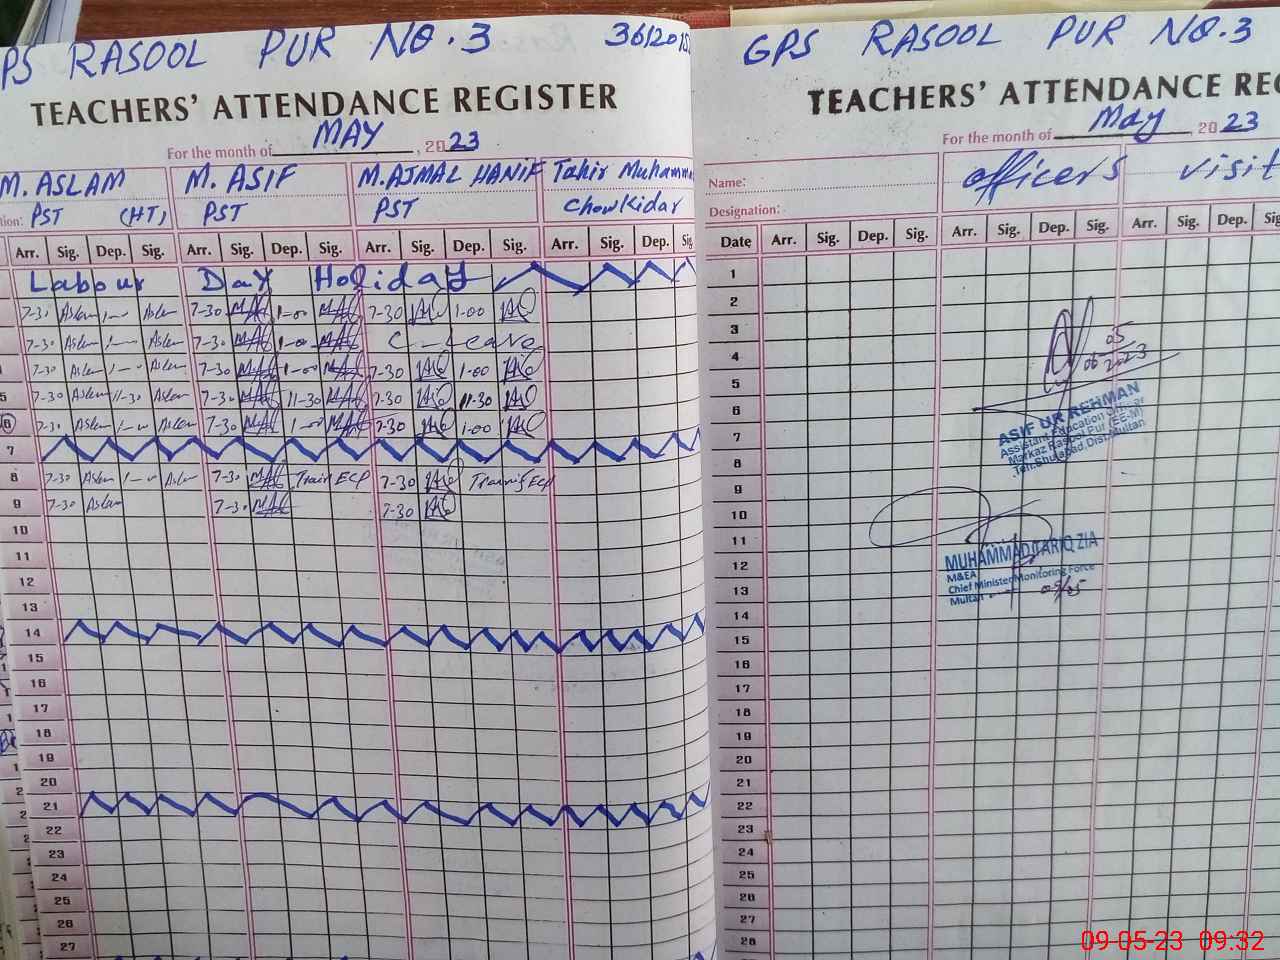 PS RASOOL PUR NO.3 36120
TEACHERS' ATTENDANCE REGISTER
For the month of MAY, 2023
M. ASLAM M. ASIF M.AJMAL HANIF Tahir Muhamm
tion: PST (HT) PST PST Chowkidar
Arr. Sig. Dep. Sig. Arr. Sig. Dep. Sig. Arr. Sig. Dep. Sig. Arr. Sig. Dep. Sig.
Labour Day Holiday
7-30 Aslam 1- Aslam 7-30 1-00 7-30 1-00
7-30 Aslam 1- Aslam 7-30 1-00 C- Leave
7-30 Aslam 1- Aslam 7-30 1-00 7-30 1-00
5 7-30 Aslam 11-30 Aslam 7-30 11-30 7-30 11-30
6 7-30 Aslam 1- Aslam 7-30 1-00 7-30 1-00
7
8 7-30 Aslam 1- Aslam 7-30 Train ECP 7-30
9 7-30 Aslam 7-30 7-30
10
11
12
13
14
15
16
17
18
19
20
21
22
23
24
25
26
27
GPS RASOOL PUR NO.3
TEACHERS' ATTENDANCE REG
For the month of May, 2023
Name: officers visit
Designation:
Date Arr. Sig. Dep. Sig. Arr. Sig. Dep. Sig. Arr. Sig. Dep. Sig.
1
2
3
4
5
6
7
8
9
10
11
12
13
14
15
16
17
18
19
20
21
22
23
24
25
26
27
28
05
06 2023
ASIF UR REHMAN
Assistant Education Officer
Markaz Rasool Pur (EE-M)
Teh.Shujabad, Distt.Multan
MUHAMMAD TARIQ ZIA
M&EA
Chief Minister Monitoring Force
Multan
09/05
09-05-23 09:32